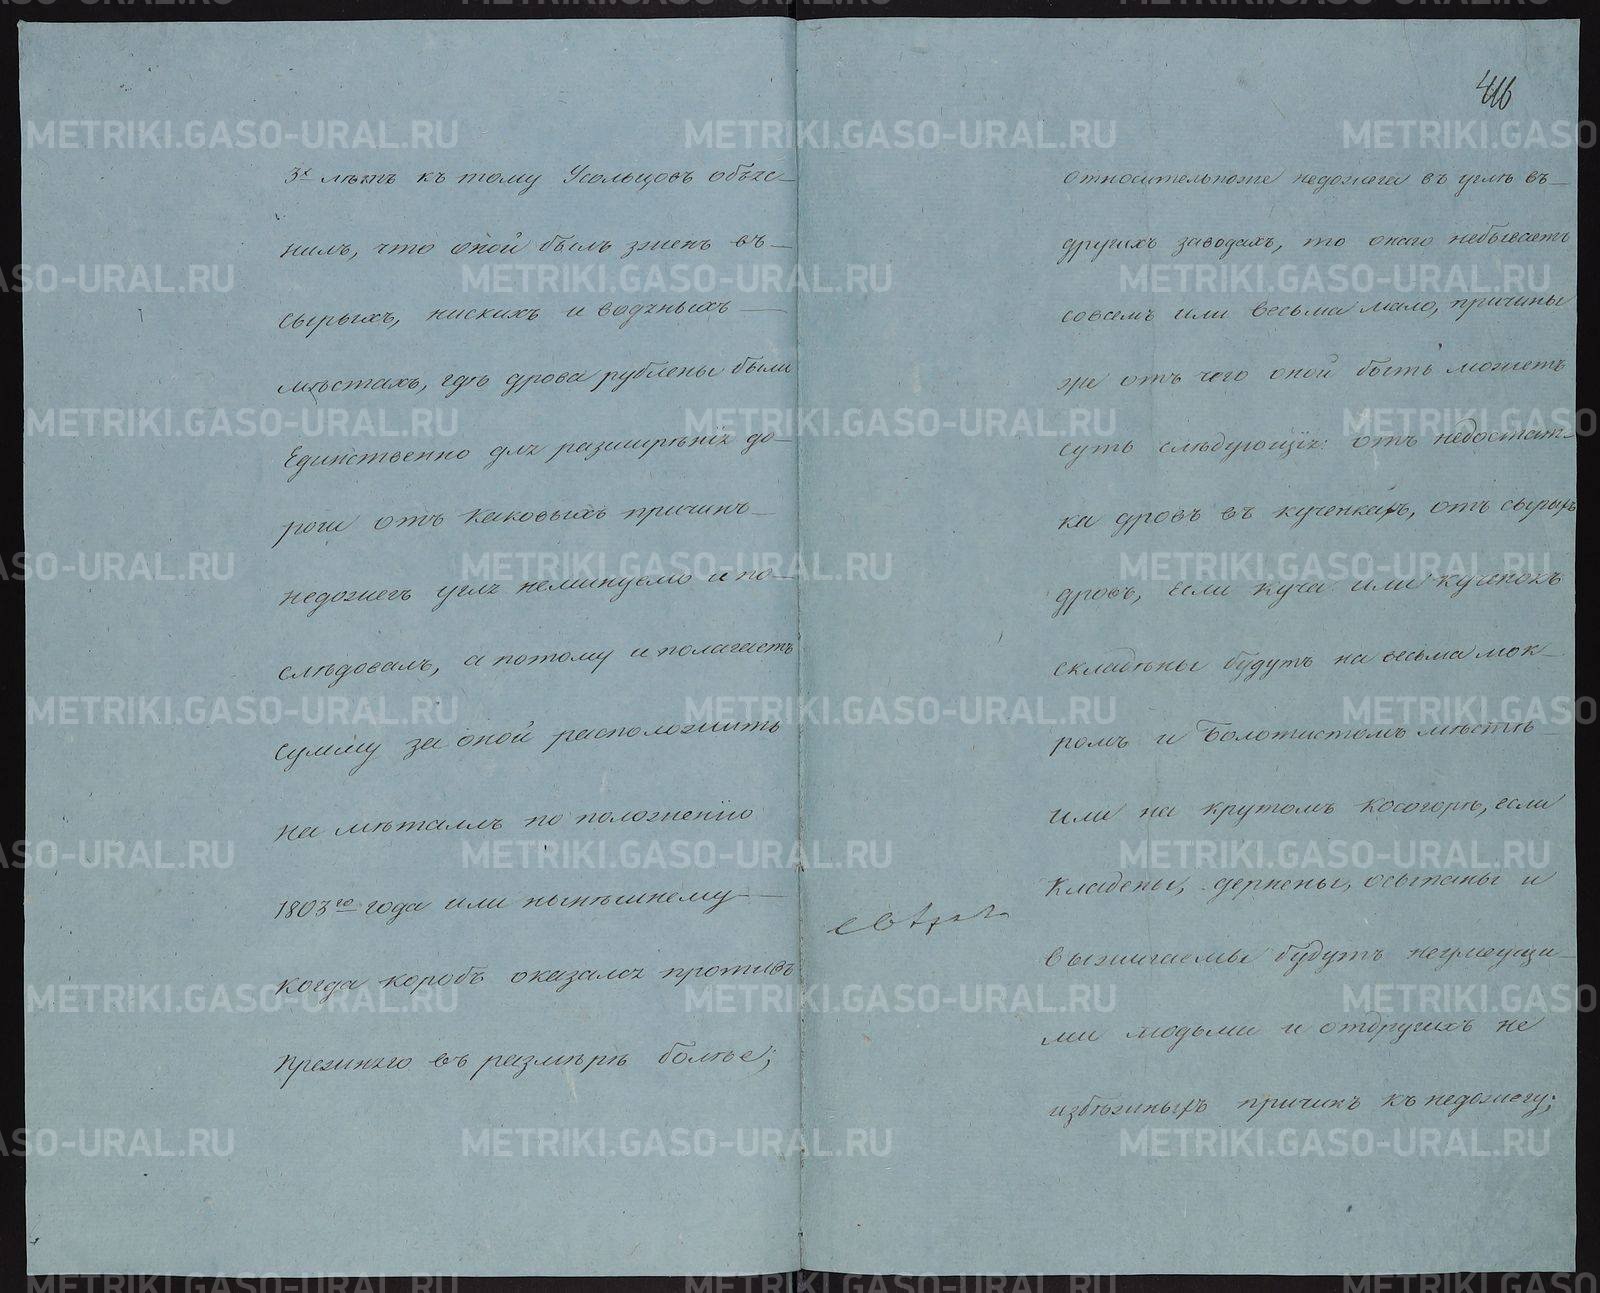 3х лѣтъ къ тому Усольцовъ объяс-
нилъ, что оной былъ зженъ въ
сырыхъ, нискихъ и водяныхъ
мѣстахъ, гдѣ дрова рублены были
Единственно для разширѣнія до-
роги отъ каковыхъ причинъ
недожегъ угля неминуемо и по-
слѣдовалъ, а потому и полагаетъ
сумму за оной расположить
на мѣталлъ по положенію
1803го года или нынѣшнему
когда коробъ оказался противъ
прежняго въ размѣрѣ болѣе;
416
относительноже недожега въ углѣ въ
другихъ заводахъ, то онаго небываетъ
совсемъ или весьма мало, причины
же отъ чего оной быть можетъ
суть слѣдующія: отъ недостат-
ка дровъ въ кученкахъ, отъ сырыхъ
дровъ, если куча или кученокъ
складены будутъ на весьма мок-
ромъ и болотистомъ мѣстѣ
или на крутомъ косогорѣ, если
кладены, дернены, осыпаны и
выжигаемы будутъ неумѣющи-
ми людьми и отдругихъ не
избѣжныхъ причинъ къ недожегу;
METRIKI.GASO-URAL.RU